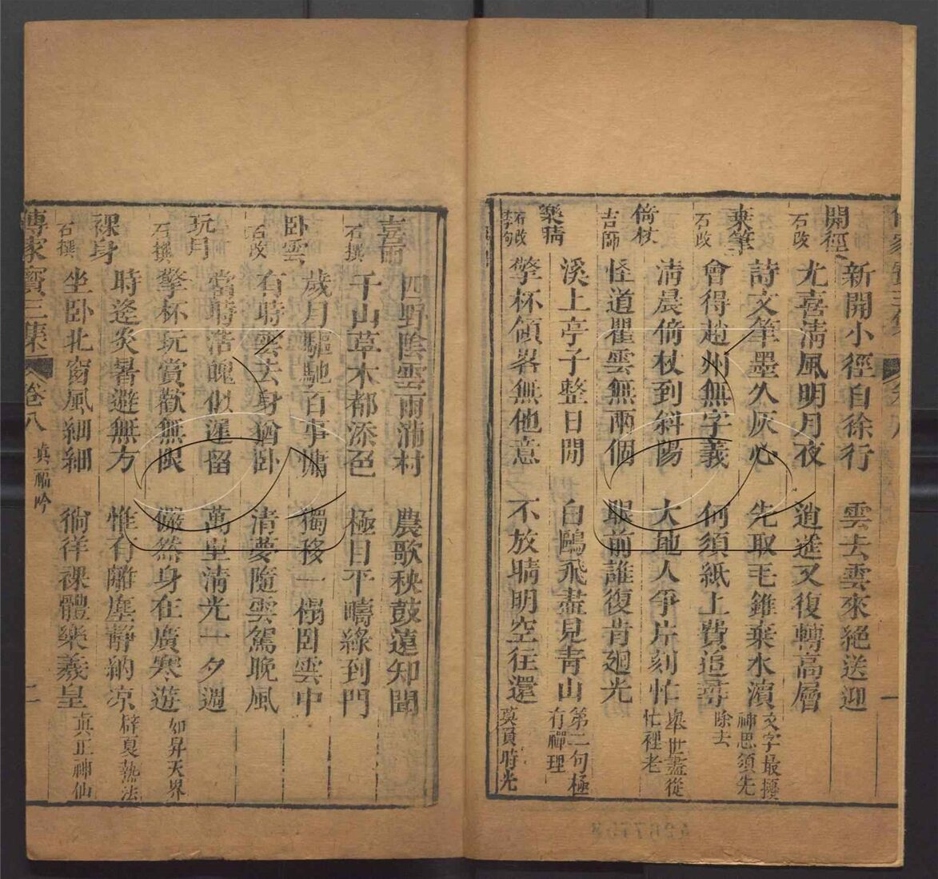 開徑 石改
新開小徑自徐行 雲去雲來絕送迎
尤喜淸風明月夜 逍遙又復轉高層
棄筆 石改
詩文筆墨久灰心 先取毛錐棄水濱 文字最擾神思須先除去
會得趙州無字義 何須紙上費追尋
倚杖 吉師
淸晨倚杖到斜陽 大地人爭片刻忙 舉世盡從忙裡老
怪道瞿雲無兩個 眼前誰復肯廻光
樂晴 石改李句
溪上亭子整日閒 白鷗飛盡見青山 第二句極有禪理
擎杯領畧無他意 不放晴明空往還 莫負時光
喜雨 石撰
四野陰雲雨滿村 農歌秧鼓遠知聞
千山草木都添色 極目平疇綠到門
卧雲 石改
歲月驅馳百事慵 獨移一榻卧雲中
有時雲去身猶卧 淸夢隨雲駕晚風
玩月 石撰
當時落魄似淹留 萬里淸光一夕週
擎杯玩賞歡無限 儼然身在廣寒遊 如昇天界
裸身 石撰
時逢炎暑避無方 惟有離塵靜納凉 辟夏熱法
坐卧北窗風細細 徜徉裸體樂羲皇 真正神仙
傳家寶三集 卷八 真福吟 二